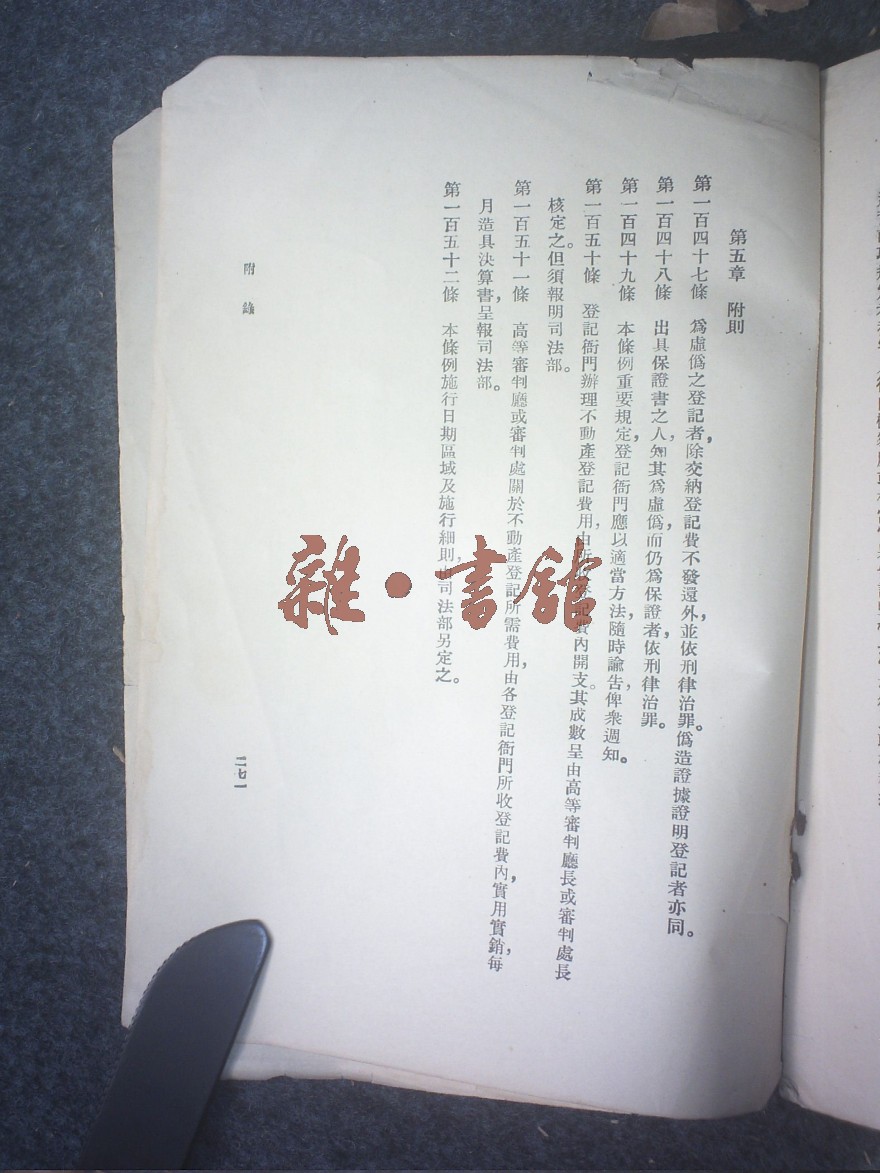 第五章　附則
第一百四十七條　爲虛僞之登記者，除交納登記費不發還外，並依刑律治罪。僞造證據證明登記者亦同。
第一百四十八條　出具保證書之人，知其爲虛僞，而仍爲保證者，依刑律治罪。
第一百四十九條　本條例重要規定，登記衙門應以適當方法，隨時諭告，俾衆週知。
第一百五十條　登記衙門辦理不動產登記費用，由所收登記費內開支。其成數呈由高等審判廳長或審判處長
核定之。但須報明司法部。
第一百五十一條　高等審判廳或審判處關於不動產登記所需費用，由各登記衙門所收登記費內，實用實銷，每
月造具決算書，呈報司法部。
第一百五十二條　本條例施行日期區域及施行細則，由司法部另定之。
附錄
二七一
雜·書館